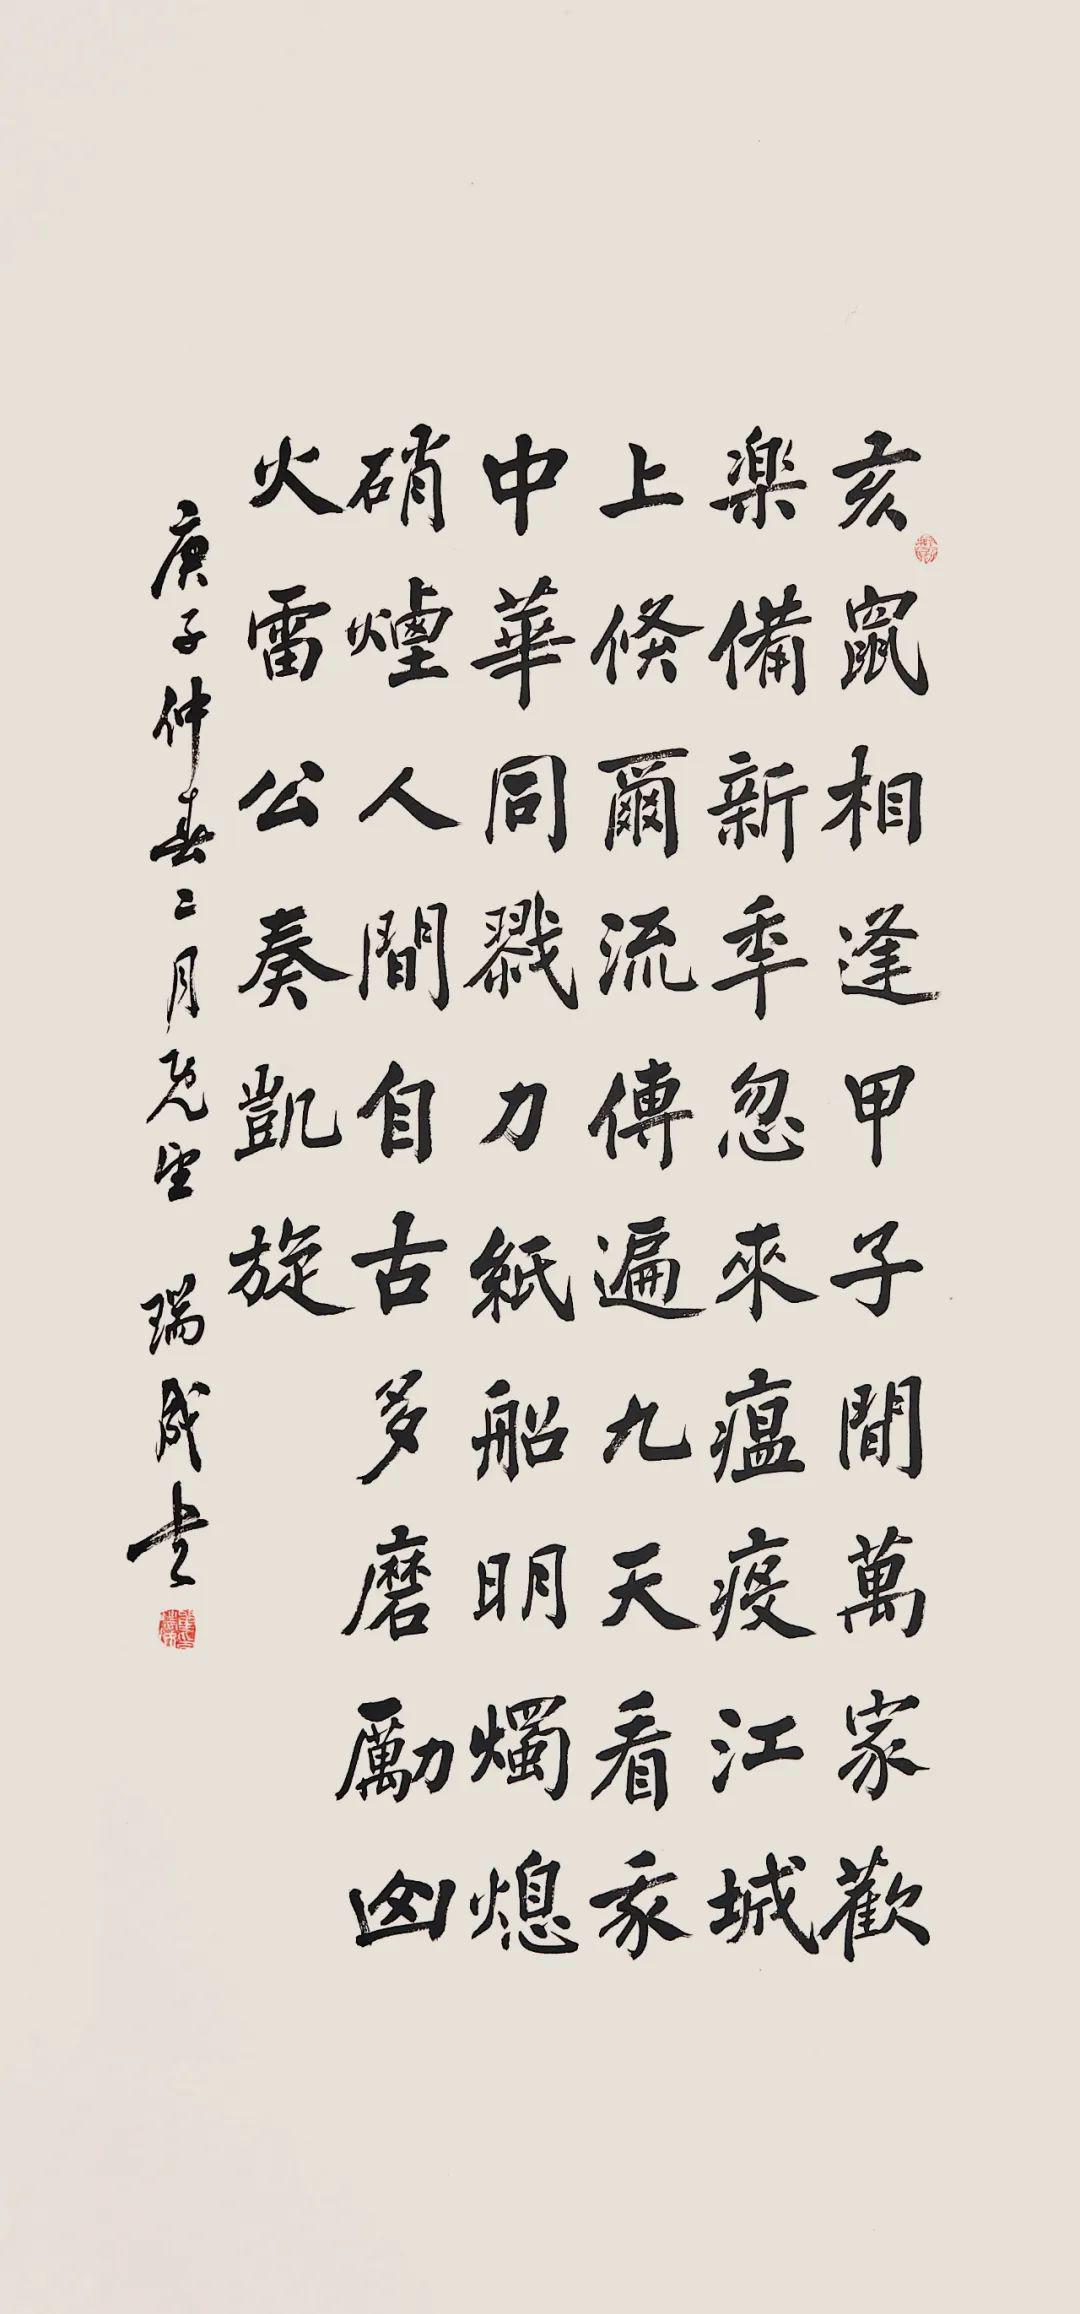 亥鼠相逢甲子間萬家歡
楽備新秊忽來瘟疫江城
上倏爾流傳遍九天看我
中華同戮力紙船明燭熄
硝煙人間自古多磨勵
火雷公奏凱旋
庚子仲春二月既望 瑞成書